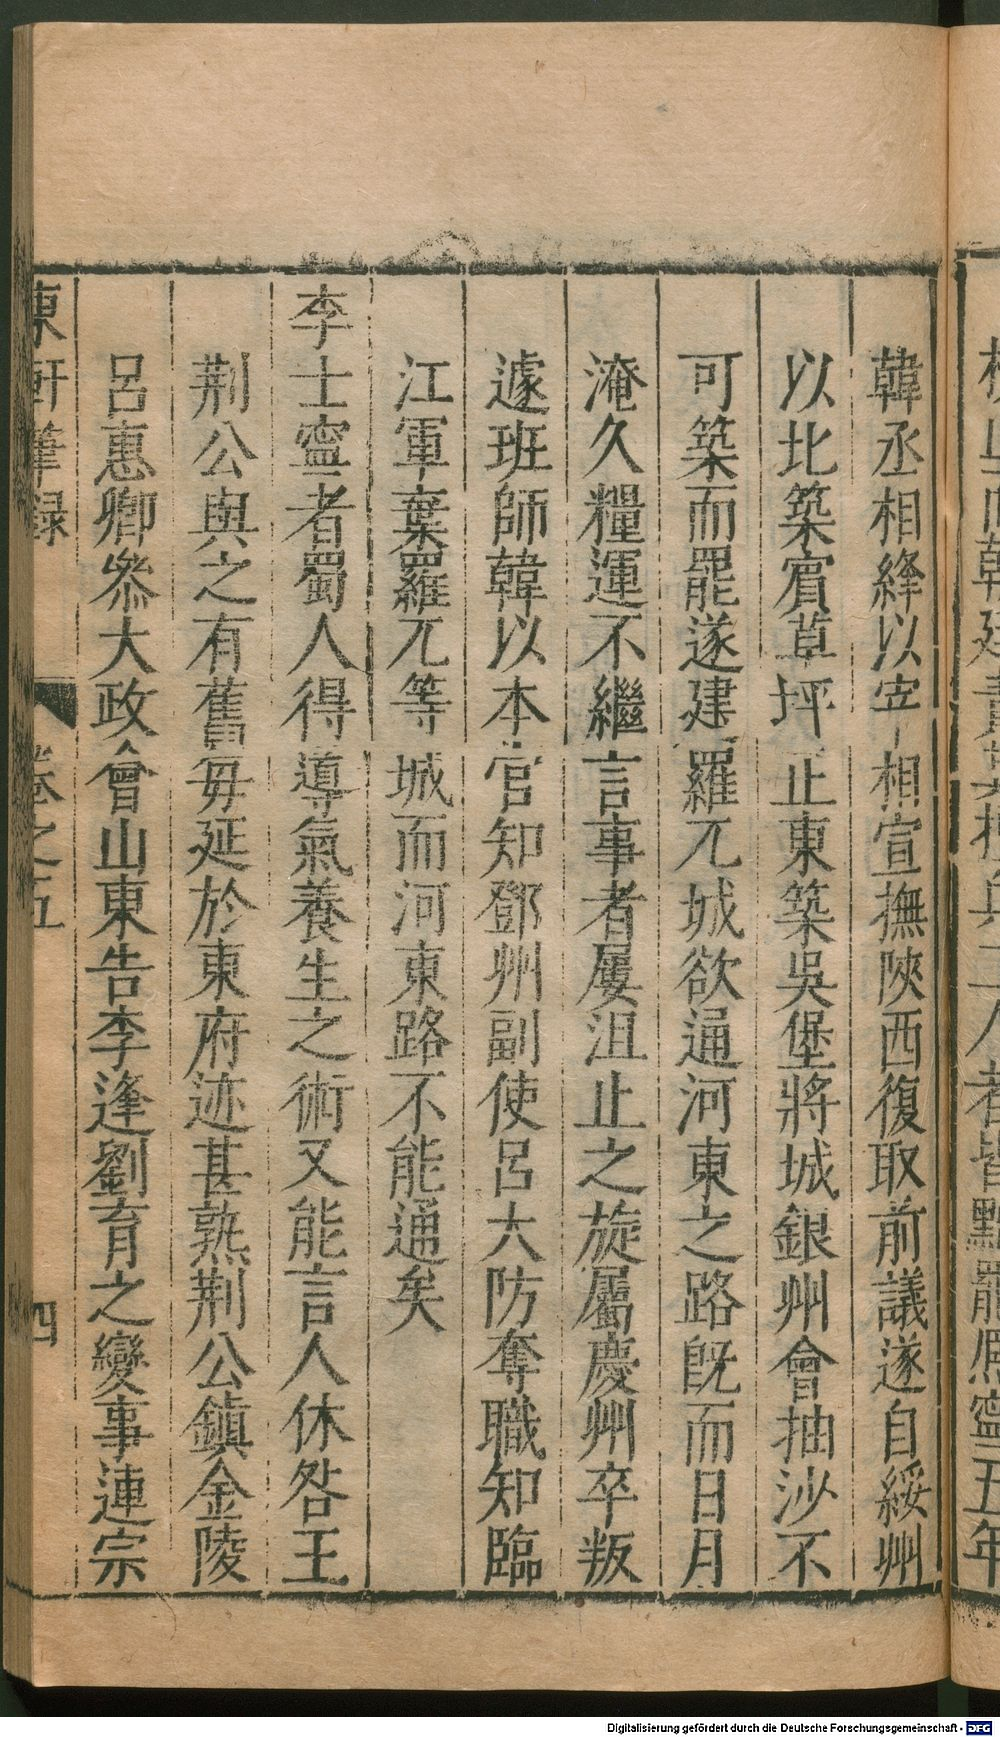 韓丞相絳以宰相宣撫陝西復取前議遂自綏州
以比築賓草坪止東築吳堡將城銀州會抽沙不
可築而罷遂建羅兀城欲通河東之路旣而日月
淹久糧運不繼言事者屢沮止之旋屬慶州卒叛
遽班師韓以本官知鄧州副使呂大防奪職知臨
江軍棄羅兀等城而河東路不能通矣
李士寧者蜀人得導氣養生之術又能言人休咎王
荆公與之有舊毋延於東府迹甚熟荆公鎮金陵
呂惠卿叅大政會山東告李逢劉育之變事連宗
東軒筆録 卷之五 四
Digitalisierung gefördert durch die Deutsche Forschungsgemeinschaft - DFG